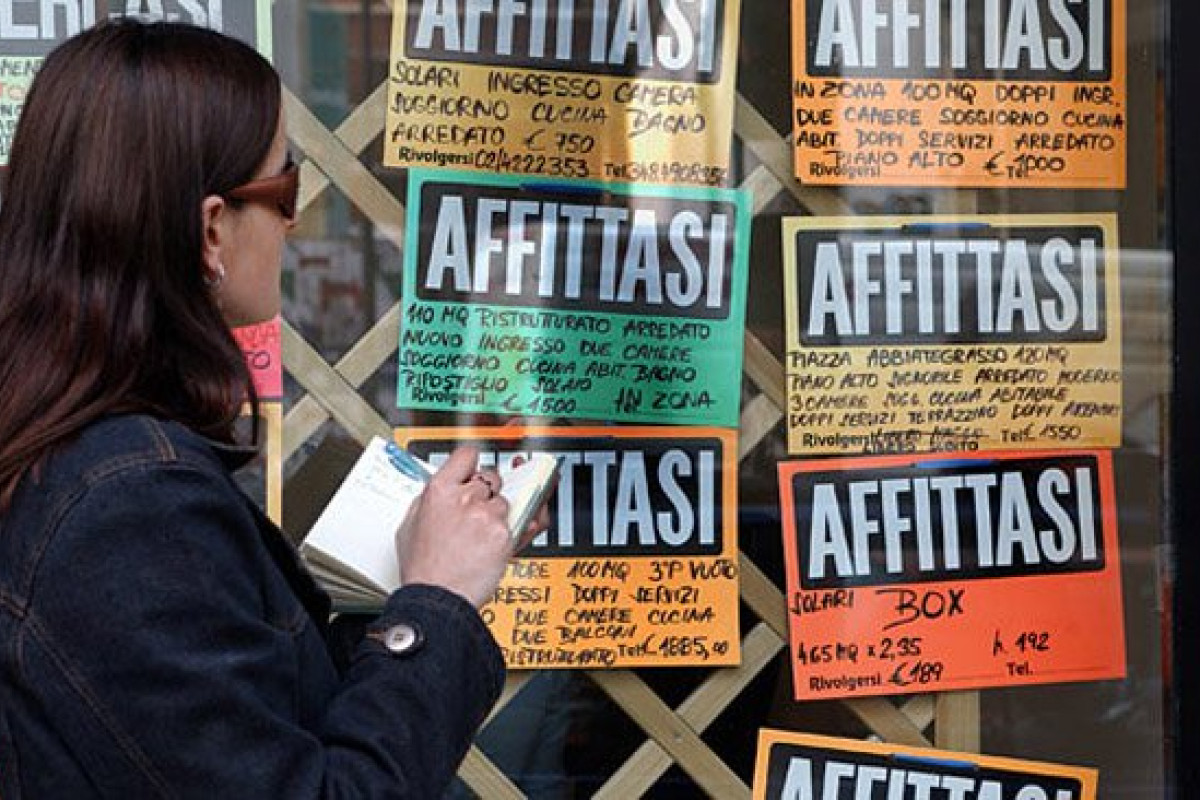 AFFITTASI
SOLARI INGRESSO CAMERA
SOGGIORNO CUCINA BAGNO
ARREDATO € 750
Rivolgersi 02/4222353 Tel.
AFFITTASI
IN ZONA 100 MQ DOPPI INGR.
DUE CAMERE SOGGIORNO CUCINA
ABIT. DOPPI SERVIZI ARREDATO
PIANO ALTO € 1000
Rivolgersi Tel.
AFFITTASI
110 MQ RISTRUTTURATO ARREDATO
NUOVO INGRESSO DUE CAMERE
SOGGIORNO CUCINA ABIT. BAGNO
RIPOSTIGLIO SOLAIO IN ZONA
Rivolgersi € 1500
AFFITTASI
PIAZZA ABBIATEGRASSO 120MQ
PIANO ALTO SIGNORILE ARREDATO MODERNO
3 CAMERE SOGG. CUCINA ABITABILE
DOPPI SERVIZI TERRAZZINO DOPPI
Rivolgersi LIBERO SUBITO Tel. € 1350
ITTASI
TORE 100MQ 3°P VUOTO
RESSI DOPPI SERVIZI
O DUE CAMERE CUCINA
DUE BALCONI
RISTRUTTURATO Tel. € 1885,00
AFFITTASI
SOLARI BOX
465MQ x 2,35 h. 192
Rivolgersi € 189 Tel.
AFFITTASI